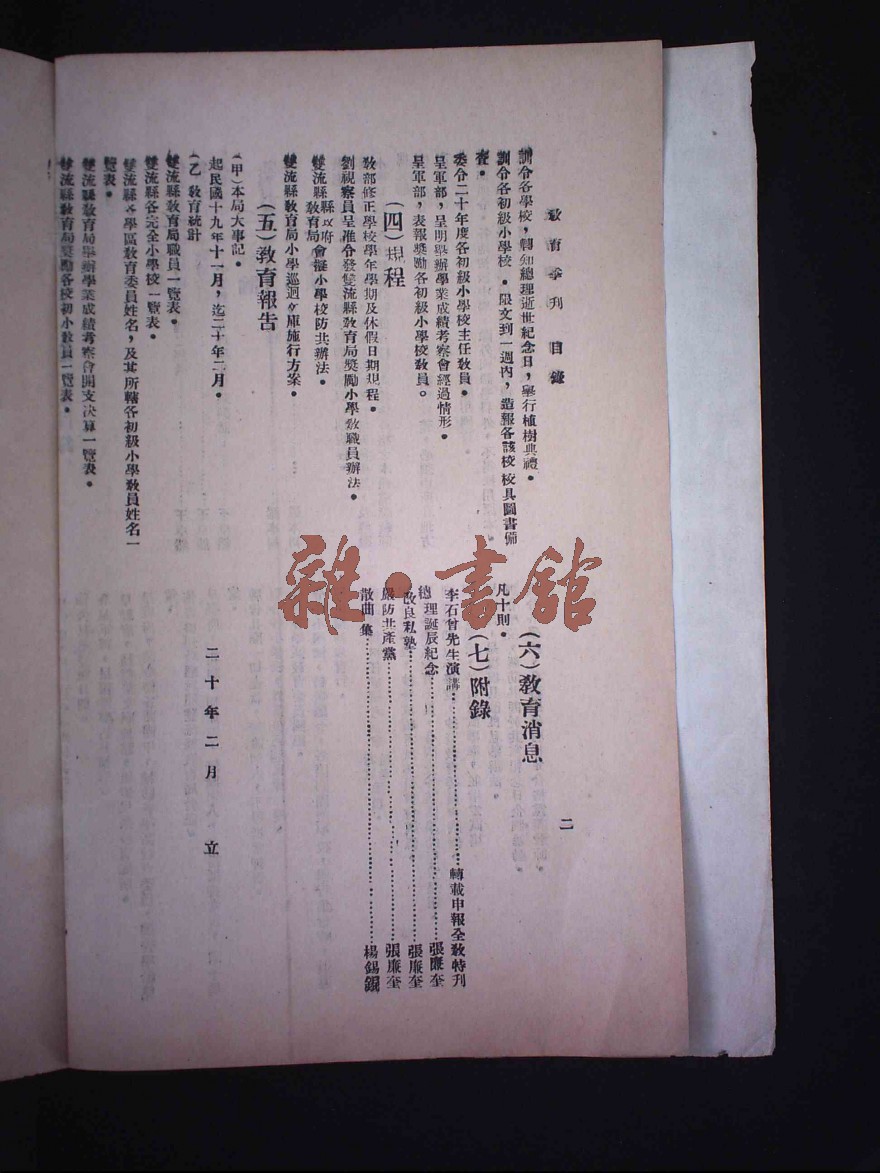 教育季刊 目錄
二
訓令各學校，轉知總理逝世紀念日，舉行植樹典禮。
訓令各初級小學校，限文到一週內，造報各該校校具圖書備
查。
委令二十年度各初級小學校主任教員。
呈軍部，呈明舉辦學業成績考察會經過情形。
呈軍部，表報獎勵各初級小學校教員。
（四）規程
教部修正學校學年學期及休假日期規程。
劉視察員呈准令發雙流縣教育局獎勵小學教職員辦法。
雙流縣縣政府教育局會擬小學校防共辦法。
雙流縣教育局小學巡迴文庫施行方案。
（五）教育報告
（甲）本局大事記。
起民國十九年十一月，迄二十年二月。
（乙）教育統計
雙流縣教育局職員一覽表。
雙流縣各完全小學校一覽表。
雙流縣各學區教育委員姓名，及其所轄各初級小學教員姓名一
覽表。
雙流縣教育局舉辦學業成績考察會開支決算一覽表。
雙流縣教育局獎勵各校初小教員一覽表。
（六）教育消息
凡十則。
（七）附錄
李石曾先生演講⋯⋯轉載申報全教特刊
總理誕辰紀念⋯⋯張廉奎
改良私塾⋯⋯張廉奎
嚴防共產黨⋯⋯張廉奎
散曲集⋯⋯楊錫鐶
二十年二月 立
雜·書館